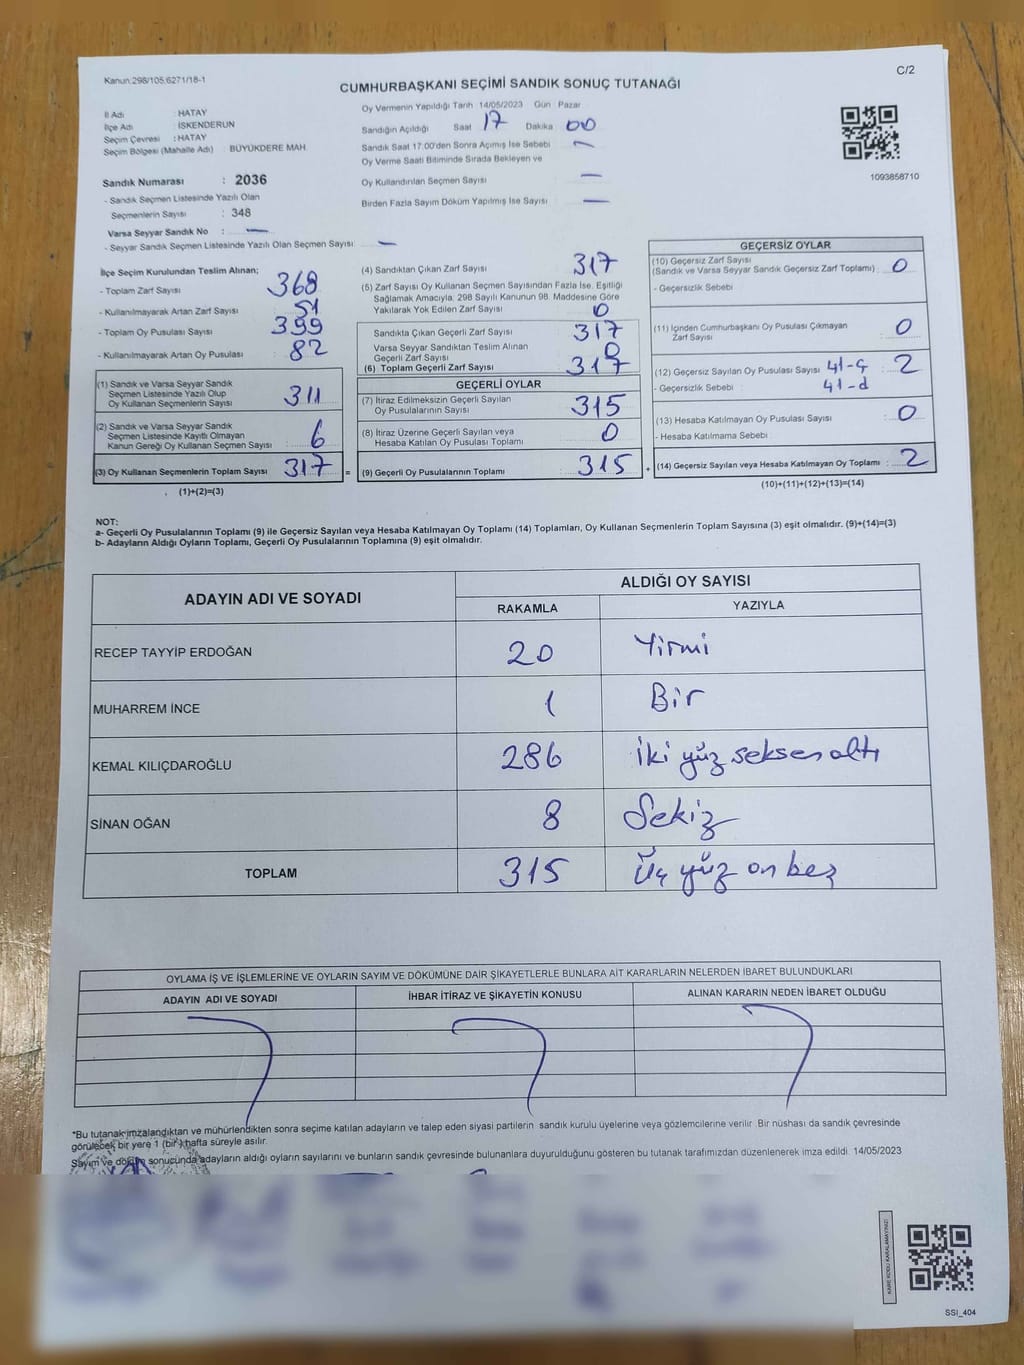 Kanun:298/105,6271/18-1
C/2
CUMHURBAŞKANI SEÇİMİ SANDIK SONUÇ TUTANAĞI
İl Adı : HATAY
İlçe Adı : İSKENDERUN
Seçim Çevresi : HATAY
Seçim Bölgesi (Mahalle Adı) : BÜYÜKDERE MAH.
Sandık Numarası : 2036
- Sandık Seçmen Listesinde Yazılı Olan
Seçmenlerin Sayısı : 348
Varsa Seyyar Sandık No : —
- Seyyar Sandık Seçmen Listesinde Yazılı Olan Seçmen Sayısı : —
Oy Vermenin Yapıldığı Tarih 14/05/2023 Gün Pazar
Sandığın Açıldığı Saat 17 Dakika 00
Sandık Saat 17:00'den Sonra Açımış İse Sebebi —
Oy Verme Saati Bitiminde Sırada Bekleyen ve
Oy Kullandırılan Seçmen Sayısı —
Birden Fazla Sayım Döküm Yapılmış İse Sayısı —
1093858710
İlçe Seçim Kurulundan Teslim Alınan;
- Toplam Zarf Sayısı 368
- Kullanılmayarak Artan Zarf Sayısı 51
- Toplam Oy Pusulası Sayısı 399
- Kullanılmayarak Artan Oy Pusulası 82
(1) Sandık ve Varsa Seyyar Sandık
Seçmen Listesinde Yazılı Olup
Oy Kullanan Seçmenlerin Sayısı 311
(2) Sandık ve Varsa Seyyar Sandık
Seçmen Listesinde Kayıtlı Olmayan
Kanun Gereği Oy Kullanan Seçmen Sayısı 6
(3) Oy Kullanan Seçmenlerin Toplam Sayısı 317 =
(1)+(2)=(3)
(4) Sandıktan Çıkan Zarf Sayısı 317
(5) Zarf Sayısı Oy Kullanan Seçmen Sayısından Fazla İse, Eşitliği
Sağlamak Amacıyla, 298 Sayılı Kanunun 98. Maddesine Göre
Yakılarak Yok Edilen Zarf Sayısı 0
Sandıkta Çıkan Geçerli Zarf Sayısı 317
Varsa Seyyar Sandıktan Teslim Alınan
Geçerli Zarf Sayısı 0
(6) Toplam Geçerli Zarf Sayısı 317
GEÇERLİ OYLAR
(7) İtiraz Edilmeksizin Geçerli Sayılan
Oy Pusulalarının Sayısı 315
(8) İtiraz Üzerine Geçerli Sayılan veya
Hesaba Katılan Oy Pusulası Toplamı 0
(9) Geçerli Oy Pusulalarının Toplamı 315 +
GEÇERSİZ OYLAR
(10) Geçersiz Zarf Sayısı
(Sandık ve Varsa Seyyar Sandık Geçersiz Zarf Toplamı) : 0
- Geçersizlik Sebebi
(11) İçinden Cumhurbaşkanı Oy Pusulası Çıkmayan
Zarf Sayısı : 0
(12) Geçersiz Sayılan Oy Pusulası Sayısı 41-ç : 2
- Geçersizlik Sebebi : 41-d
(13) Hesaba Katılmayan Oy Pusulası Sayısı : 0
- Hesaba Katılmama Sebebi
(14) Geçersiz Sayılan veya Hesaba Katılmayan Oy Toplamı : 2
(10)+(11)+(12)+(13)=(14)
NOT:
a- Geçerli Oy Pusulalarının Toplamı (9) ile Geçersiz Sayılan veya Hesaba Katılmayan Oy Toplamı (14) Toplamları, Oy Kullanan Seçmenlerin Toplam Sayısına (3) eşit olmalıdır. (9)+(14)=(3)
b- Adayların Aldığı Oyların Toplamı, Geçerli Oy Pusulalarının Toplamına (9) eşit olmalıdır.
ADAYIN ADI VE SOYADI
ALDIĞI OY SAYISI
RAKAMLA YAZIYLA
RECEP TAYYİP ERDOĞAN 20 Yirmi
MUHARREM İNCE 1 Bir
KEMAL KILIÇDAROĞLU 286 İki yüz seksen altı
SİNAN OĞAN 8 Sekiz
TOPLAM 315 Üç yüz on beş
OYLAMA İŞ VE İŞLEMLERİNE VE OYLARIN SAYIM VE DÖKÜMÜNE DAİR ŞİKAYETLERLE BUNLARA AİT KARARLARIN NELERDEN İBARET BULUNDUKLARI
ADAYIN ADI VE SOYADI İHBAR İTİRAZ VE ŞİKAYETİN KONUSU ALINAN KARARIN NEDEN İBARET OLDUĞU
*Bu tutanak imzalandıktan ve mühürlendikten sonra seçime katılan adayların ve talep eden siyasi partilerin sandık kurulu üyelerine veya gözlemcilerine verilir. Bir nüshası da sandık çevresinde
görülecek bir yere 1 (bir) hafta süreyle asılır.
Sayım ve döküm sonucunda adayların aldığı oyların sayılarını ve bunların sandık çevresinde bulunanlara duyurulduğunu gösteren bu tutanak tarafımızdan düzenlenerek imza edildi. 14/05/2023
KARE KODU KARALAMAYINIZ!
SSI_404